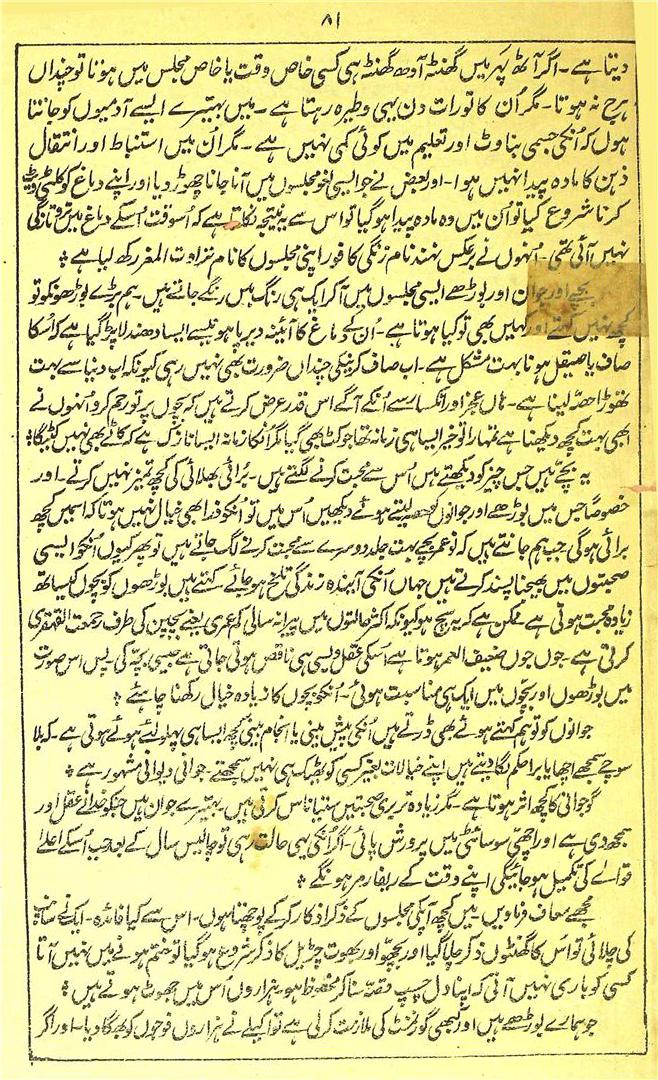 ۸۱
دیتا ہے ۔ اگر آٹھ پہر میں گھنٹہ آدھ گھنٹہ ہی کسی خاص وقت یا خاص مجلس میں ہوتا تو چنداں
ہرج نہ ہوتا ۔ مگر اُن کا تو رات دن یہی وطیرہ رہتا ہے ۔ میں بہتیرے ایسے آدمیوں کو جانتا
ہوں کہ اُنکی جسمی بناوٹ اور تعلیم میں کوئی کمی نہیں ہے ۔ مگر اُن میں استنباط اور انتقال
ذہن کا مادہ پیدا نہیں ہوا ۔ اور بعض نے جو ایسی لغو مجلسوں میں آنا جانا چھوڑ دیا اور اپنے دماغ کو کلٹی ویٹ
کرنا شروع کیا تو اُن میں وہ مادہ پیدا ہو گیا تو اس سے یہ نتیجہ نکلتا ہے کہ اُسوقت اُسکے دماغ میں تر و تازگی
نہیں آئی تھی ۔ اُنہوں نے برعکس نہند نام زنگی کافور اپنی مجلسوں کا نام نزاوت المغز رکھ لیا ہے ؞
بچے اور جوان اور بوڑھے ایسی مجلسوں میں آ کر ایک ہی رنگ میں رنگے جاتے ہیں ۔ ہم بڑے بوڑھونکو تو
کچھ نہیں کہتے اور کہیں بھی تو کیا ہوتا ہے ۔ اُن کے دماغ کا آئینہ دیرپا ہونیسے ایسا دھندلا پڑ گیا ہے کہ اُسکا
صاف یا صیقل ہونا بہت مشکل ہے ۔ اب صاف کرنیکی چنداں ضرورت بھی نہیں رہی کیونکہ اب دنیا سے بہت
تھوڑا حصہ لینا ہے ۔ ہاں عجز اور انکسار سے اُنکے آگے اس قدر عرض کرتے ہیں کہ بچوں پر تو رحم کرو اُنہوں نے
ابھی بہت کچھ دیکھنا ہے تمہارا تو خیر ایسا ہی زمانہ تھا جو کٹ بھی گیا مگر اُنکا زمانہ ایسا نازک ہے کہ کاٹے بھی نہیں کٹیگا ؞
یہ بچے ہیں جس چیز کو دیکھتے ہیں اُس سے محبت کرنے لگتے ہیں ۔ بُرائی بھلائی کی کچھ تمیز نہیں کرتے ۔ اور
خصوصاً جس میں بوڑھے اور جوانوں کو حصہ لیتے ہوئے دیکھیں اُس میں تو اُنکو ذرا بھی خیال نہیں ہوتا کہ اسمیں کچھ
برائی ہوگی جب ہم جانتے ہیں کہ نو عمر بچے بہت جلد دوسرے سے محبت کرنے لگ جاتے ہیں تو پھر کیوں اُنکو ایسی
صحبتوں میں بھیجنا پسند کرتے ہیں جہاں اُنکی آیندہ زندگی تلخ ہو جائے ۔ کہتے ہیں بوڑھوں کو بچوں کیساتھ
زیادہ محبت ہوتی ہے ۔ ممکن ہے کہ یہ سچ ہو کیونکہ اکثر حالتوں میں پیرانہ سالی کم عمری یعنے بچپن کی طرف رجعت القہقری
کرتی ہے ۔ جوں جوں ضعیف العمر ہوتا ہے اُسکی عقل ویسی ہی ناقص ہوتی جاتی ہے جیسی بچہ کی ۔ پس اس صورت
میں بوڑھوں اور بچوں میں ایک ہی مناسبت ہوئی ۔ اُنکو بچوں کا زیادہ خیال رکھنا چاہئے ؞
جوانوں کو تو ہم کہتے ہوئے بھی ڈرتے ہیں اُنکی پیش بینی یا انجام بینی کچھ ایسا ہی پہلو لئے ہوئے ہوتی ہے ۔ کہ بلا
سوچے سمجھے اچھا یا برا حکم لگا دیتے ہیں اپنے خیالات بغیر کسی کو ٹھیک ہی نہیں سمجھتے ۔ جوانی دیوانی مشہور ہے ؞
گو جوانی کا کچھ اثر ہوتا ہے ۔ مگر زیادہ تر بری صحبتیں ستیاناس کرتی ہیں ۔ بہتیرے جوان ہیں جنکو خدا نے عقل اور
سمجھ دی ہے اور اچھی سوسائٹی میں پرورش پائی ۔ اگر اُنکی یہی حالت رہی تو چالیس سال کے بعد جب اُسکے اعلےٰ
قواے کی تکمیل ہو جائیگی اپنے وقت کے ریفارمر ہونگے ؞
مجھے معاف فرماویں میں کچھ آپکی مجلسوں کے ذکر اذکار کر کے پوچھتا ہوں ۔ اس سے کیا فائدہ ۔ ایک نے سانپ
کی چلائی تو اُس کا گھنٹوں ذکر چلا گیا اور بچھو اور بھوت چڑیل کا ذکر شروع ہو گیا تو ختم ہونے میں نہیں آتا
کسی کو باری نہیں آتی کہ اپنا دل چسپ قصہ سنا کر محظوظ ہو ہزاروں اس میں جھوٹ ہوتے ہیں ؞
جو ہمارے بوڑھے ہیں اور کبھی گورنمنٹ کی ملازمت کر لی ہے تو اکیلے نے ہزاروں فوجوں کو بھگا دیا ۔ اور اگر